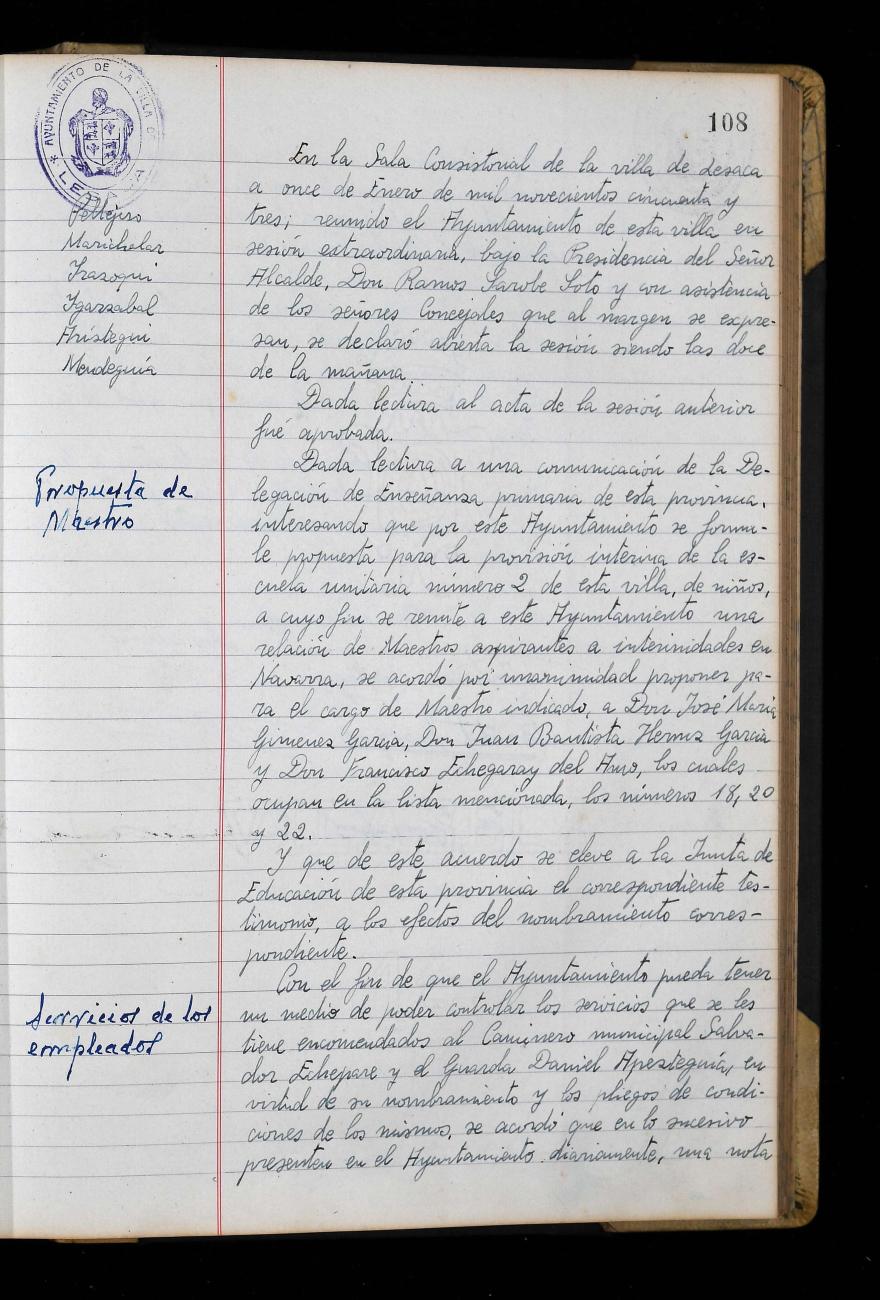 108
AYUNTAMIENTO DE LA VILLA DE
LESACA
Pellejero
Marichalar
Irazoqui
Igarzabal
Arístegui
Mendeguía
En la Sala Consistorial de la villa de Lesaca
a once de Enero de mil novecientos cincuenta y
tres; reunido el Ayuntamiento de esta villa en
sesión extraordinaria, bajo la Presidencia del Señor
Alcalde, Don Ramos Sarobe Soto y con asistencia
de los señores Concejales que al margen se expre-
san, se declaró abierta la sesión siendo las doce
de la mañana.
Dada lectura al acta de la sesión anterior
fué aprobada.
Propuesta de
Maestro
Dada lectura a una comunicación de la De-
legación de Enseñanza primaria de esta provincia,
interesando que por este Ayuntamiento se formu-
le propuesta para la provisión interina de la es-
cuela unitaria número 2 de esta villa, de niños,
a cuyo fin se remite a este Ayuntamiento una
relación de Maestros aspirantes a interinidades en
Navarra, se acordó por unanimidad proponer pa-
ra el cargo de Maestro indicado, a Don José María
Gimenez Garcia, Don Juan Bautista Hernz Garcia
y Don Francisco Echegaray del Amo, los cuales
ocupan en la lista mencionada, los números 18, 20
y 22.
Y que de este acuerdo se eleve a la Junta de
Educación de esta provincia el correspondiente tes-
timonio, a los efectos del nombramiento corres-
pondiente.
Servicios de los
empleados
Con el fin de que el Ayuntamiento pueda tener
un medio de poder controlar los servicios que se les
tiene encomendados al Caminero municipal Salva-
dor Echepare y el Guarda Daniel Apesteguía, en
virtud de su nombramiento y los pliegos de condi-
ciones de los mismos, se acordó que en lo sucesivo
presenten en el Ayuntamiento diariamente, una nota